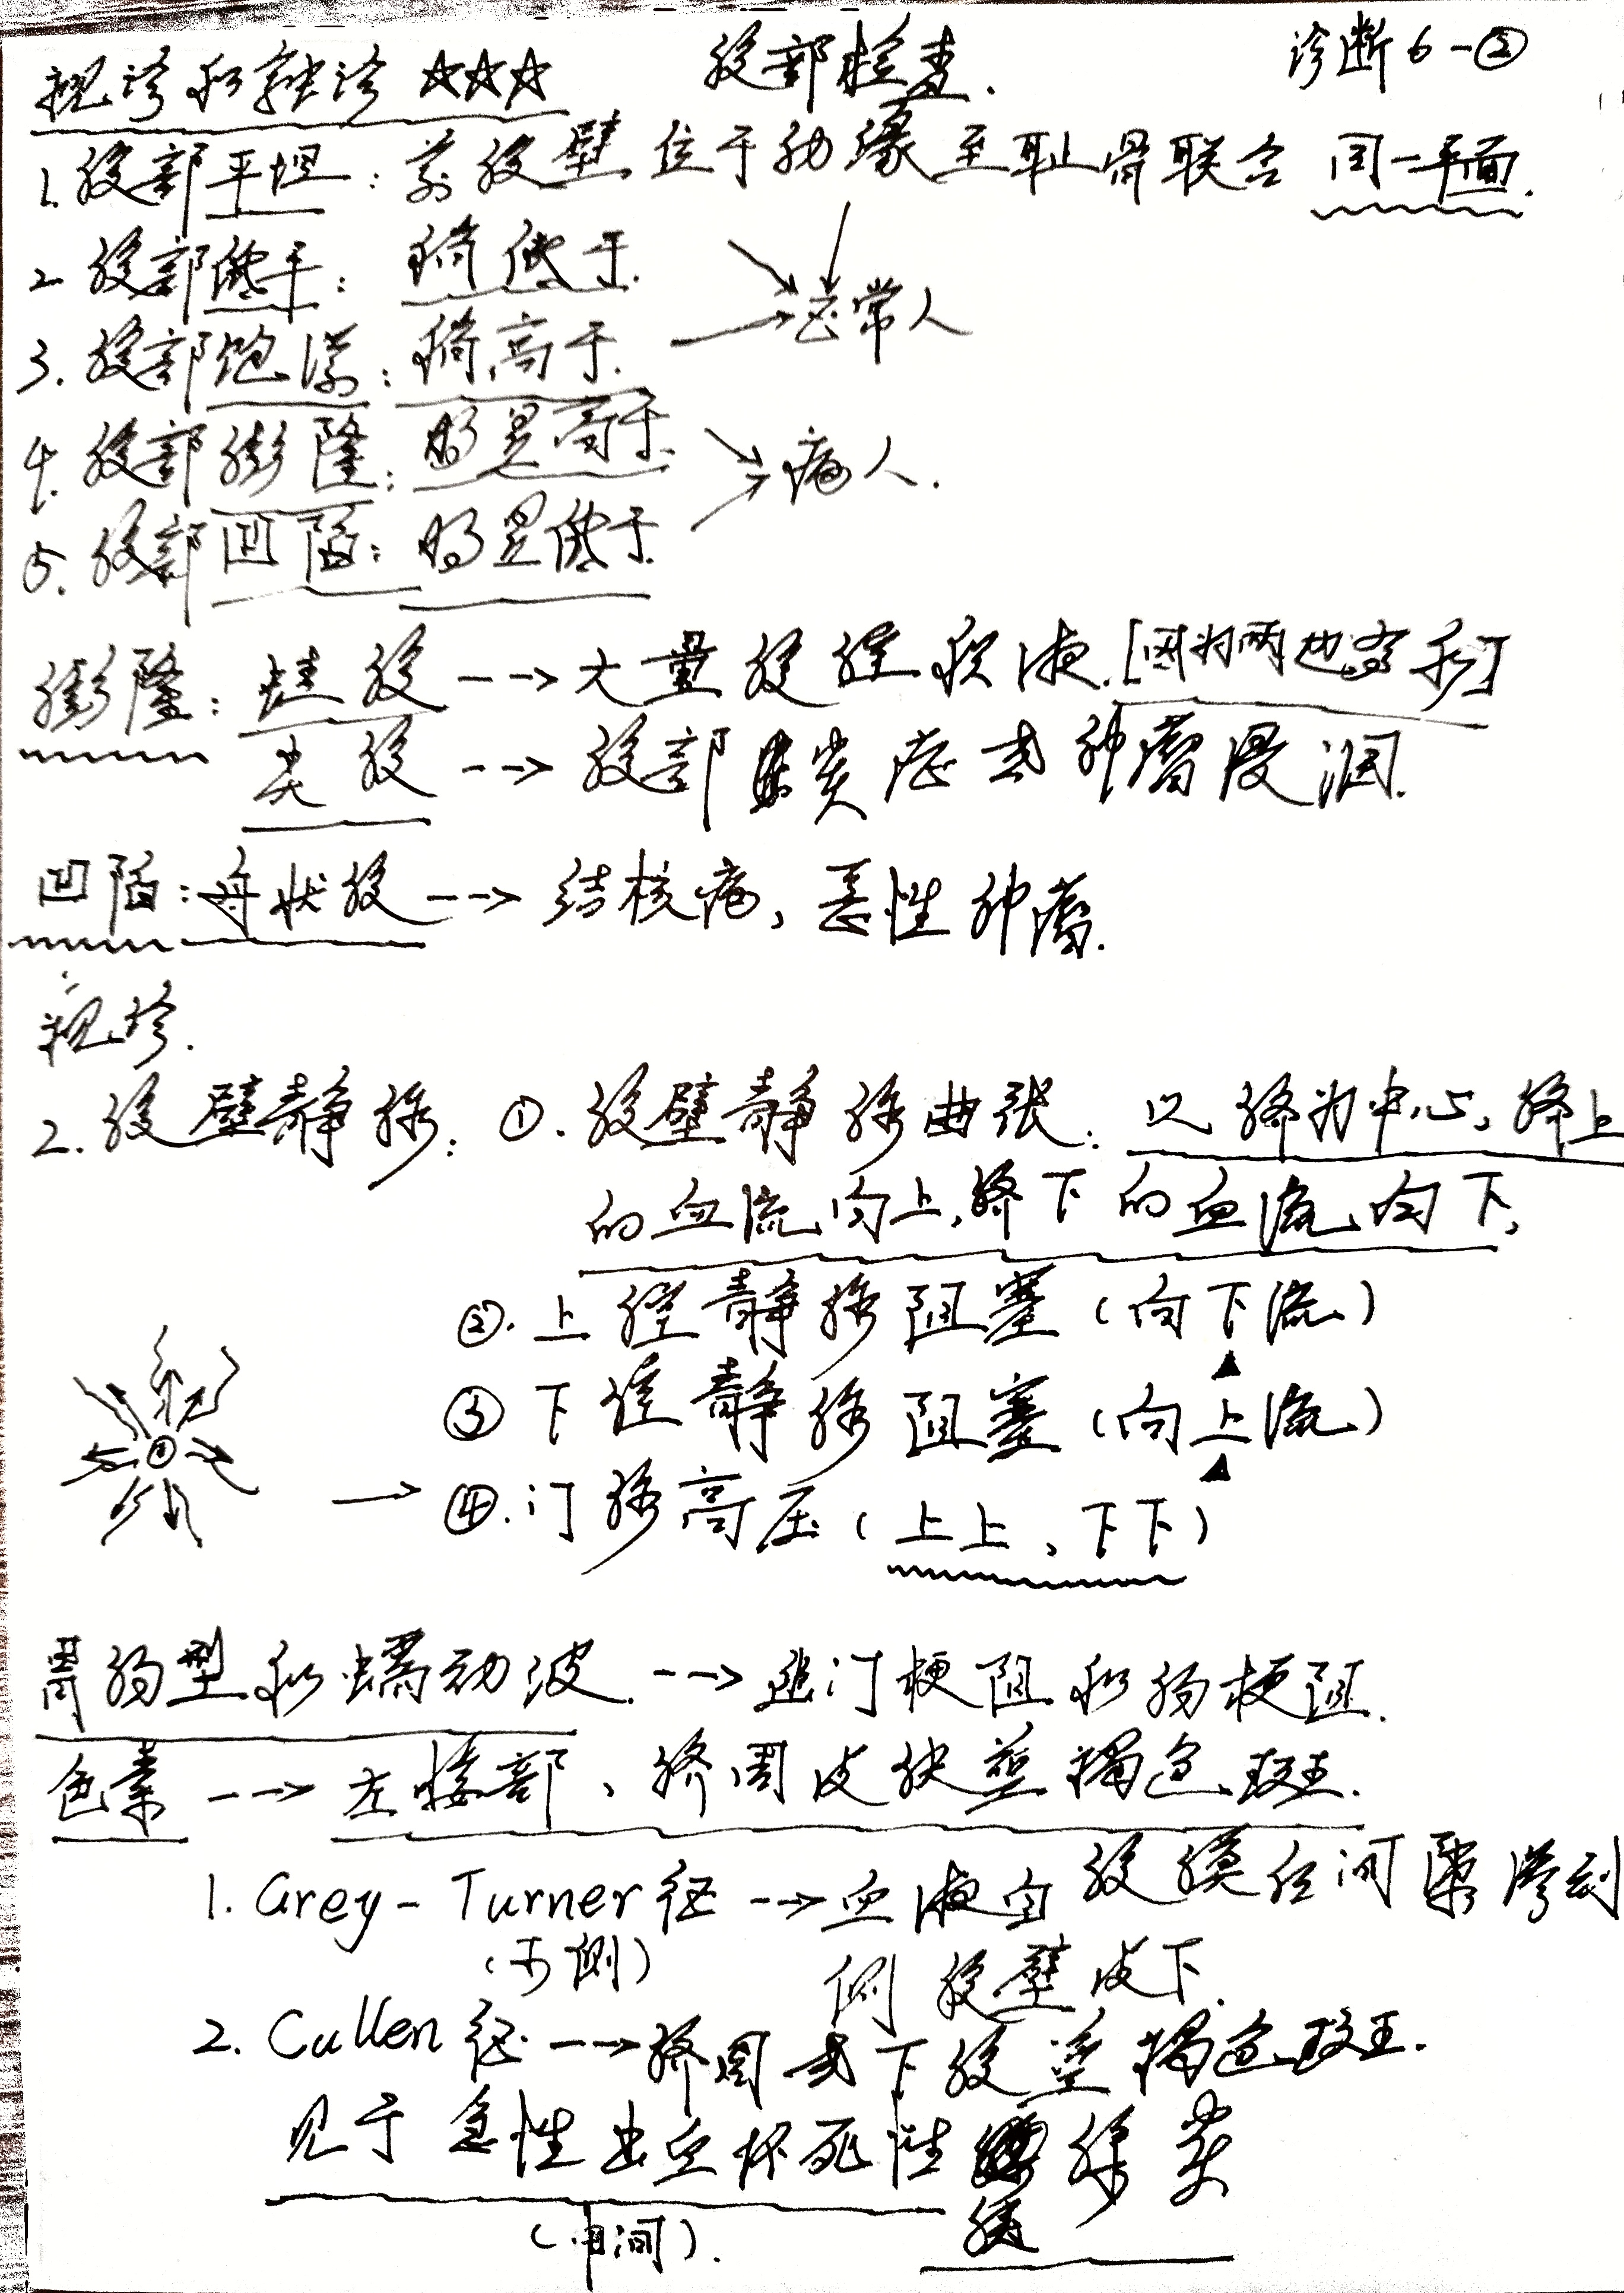 腹部检查. 诊断6-②
视诊和触诊 ☆☆☆
1. 腹部平坦：前腹壁位于肋缘至耻骨联合 同一平面.
2. 腹部低平：稍低于. → 正常人
3. 腹部饱满：稍高于.
4. 腹部膨隆：明显高于. → 病人.
5. 腹部凹陷：明显低于.
膨隆：蛙腹 --→ 大量腹腔积液.[因为两边容积]
尖腹 --→ 腹部炎症或肿瘤浸润.
凹陷：舟状腹 --→ 结核病, 恶性肿瘤.
视诊.
2. 腹壁静脉：①. 腹壁静脉曲张：以脐为中心, 脐上
的血流向上, 脐下的血流向下,
②. 上腔静脉阻塞（向下流）
③ 下腔静脉阻塞（向上流）
→ ④. 门脉高压（上上、下下）
胃肠型和蠕动波. --→ 幽门梗阻和肠梗阻.
色素 --→ 左腰部、脐周皮肤蓝褐色斑.
1. Grey-Turner征 --→ 血液自腹膜后间隙渗到
（两侧） 侧腹壁皮下.
2. Cullen征 --→ 脐周或下腹蓝褐色斑.
见于急性出血坏死性胰腺炎
（中间）.